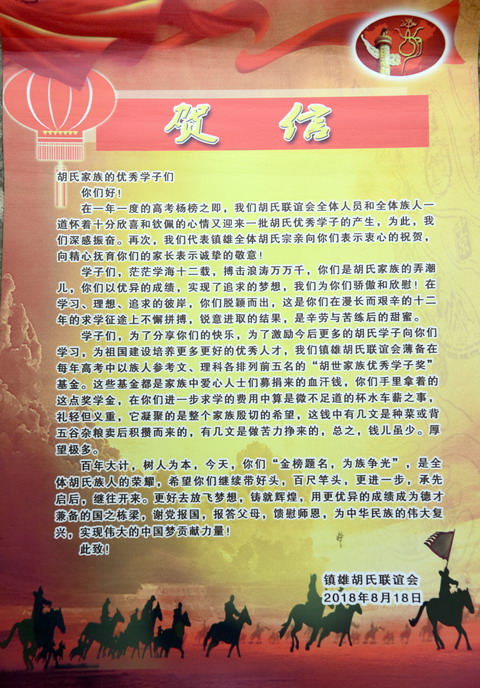 贺 信
胡氏家族的优秀学子们
你们好！
在一年一度的高考杨榜之即，我们胡氏联谊会全体人员和全体族人一
道怀着十分欣喜和钦佩的心情又迎来一批胡氏优秀学子的产生，为此，我
们深感振奋。再次，我们代表镇雄全体胡氏宗亲向你们表示衷心的祝贺，
向精心抚育你们的家长表示诚挚的敬意！
学子们，茫茫学海十二载，搏击浪涛万万千，你们是胡氏家族的弄潮
儿，你们以优异的成绩，实现了追求的梦想，我们为你们骄傲和欣慰！在
学习、理想、追求的彼岸，你们脱颖而出，这是你们在漫长而艰辛的十二
年的求学征途上不懈拼搏，锐意进取的结果，是辛劳与苦练后的甜蜜。
学子们，为了分享你们的快乐，为了激励今后更多的胡氏学子向你们
学习，为祖国建设培养更多更好的优秀人才，我们镇雄胡氏联谊会薄备在
每年高考中以族人参考文、理科各排列前五名的“胡世家族优秀学子奖”
基金。这些基金都是家族中爱心人士们募捐来的血汗钱，你们手里拿着的
这点奖学金，在你们进一步求学的费用中算是微不足道的杯水车薪之事，
礼轻但义重，它凝聚的是整个家族殷切的希望，这钱中有几文是种菜或背
五谷杂粮卖后积攒而来的，有几文是做苦力挣来的，总之，钱儿虽少。厚
望极多。
百年大计，树人为本，今天，你们“金榜题名，为族争光”，是全
体胡氏族人的荣耀，希望你们继续带好头，百尺竿头，更进一步，承先
启后，继往开来。更好去放飞梦想，铸就辉煌，用更优异的成绩成为德才
兼备的国之栋梁，谢党报国，报答父母，馈慰师恩，为中华民族的伟大复
兴，实现伟大的中国梦贡献力量！
此致！
镇雄胡氏联谊会
2018年8月18日